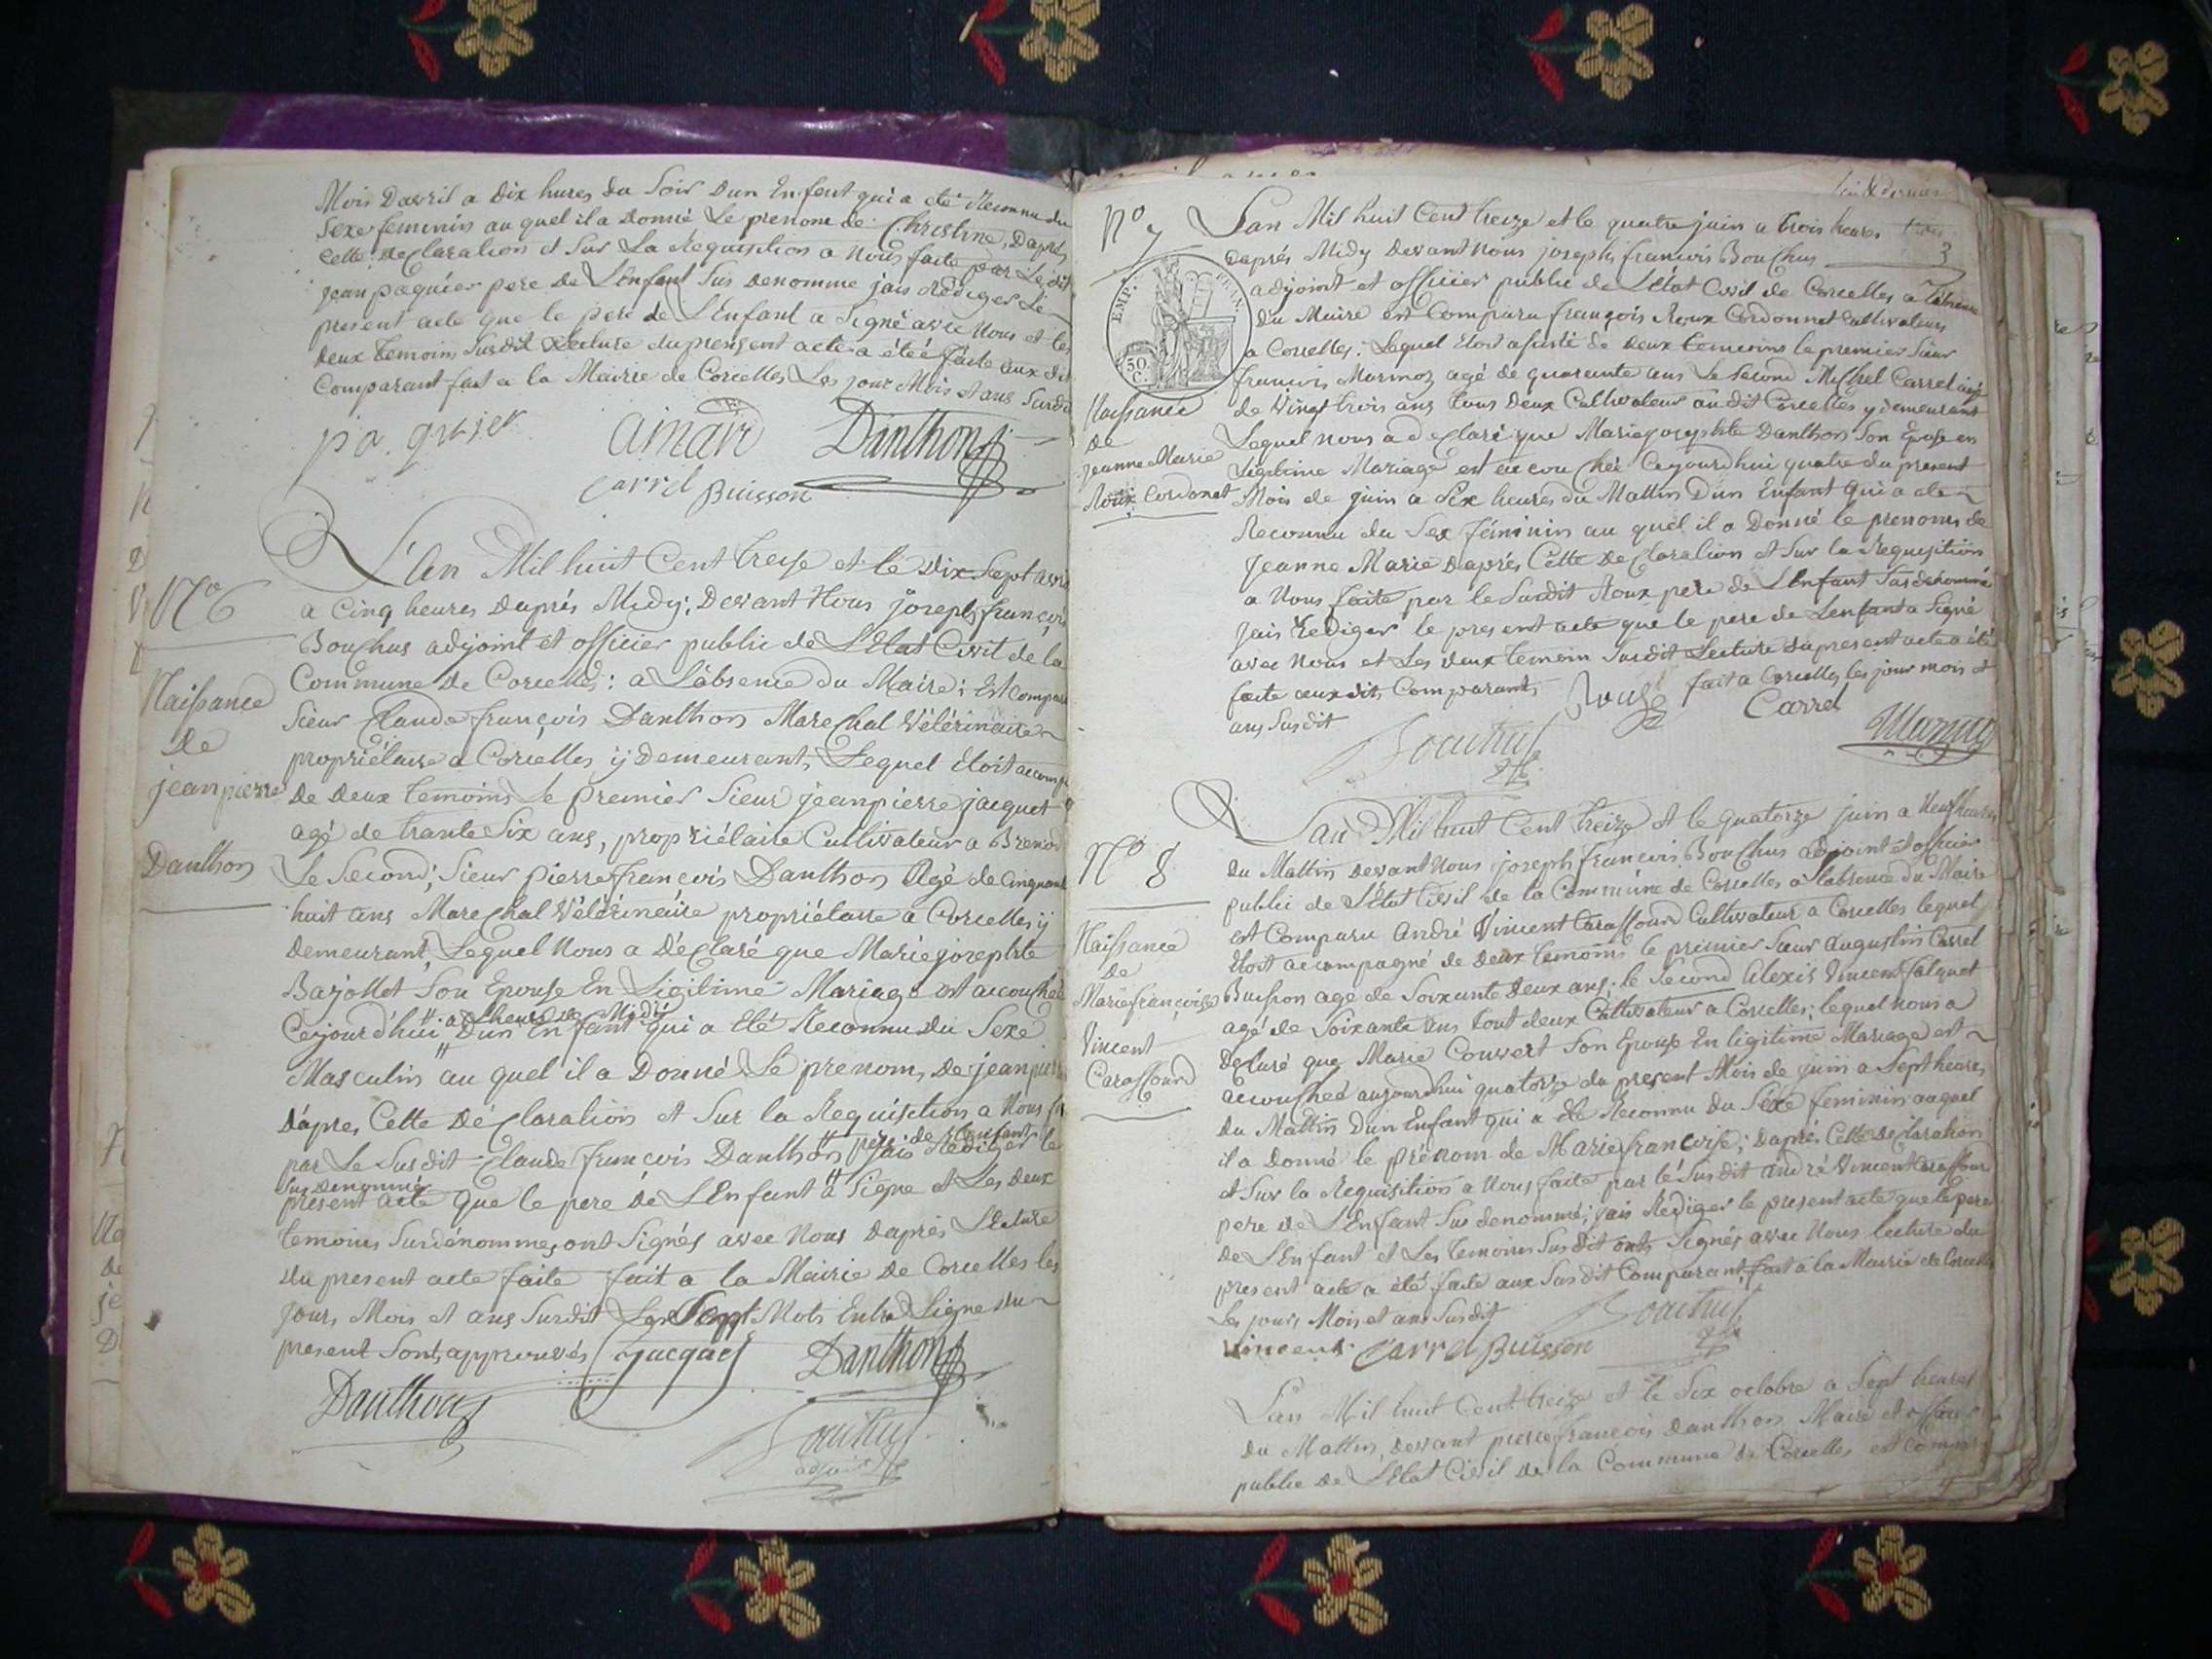 Mois Davril a Dix hures du Soir Dun Enfent qui a eté Reconnu du
Sexe feminin au quel il a Donné Le prenom de Christine, Daprès
cette, declaration et Sur La Requisition a Nous faite par Le dit
jean paquier pere de L'Enfant Sus denommé jais Rédiger Le
present acte que le pere de L'Enfant a Signé avec Nous et les
deux temoins Susdit Lecture du present acte a étéé faite aux dit
Comparant fait a la Mairie de Corcelles Les jour Mois et ans Susdit
pa. quier Aimard Danthon
Carrel Buisson
N° 6
Naissance
de
jean pierre
Danthon
L'an Mil huit Cent treize et le Dix Sept avril
a Cinq heures Daprés Midy; Devant Nous joseph françois
Bouchus adjoint et officier public de L'Etat Civil de la
Commune De Corcelles: a L'absence du Maire; Est comparu
Sieur Claude françois Danthon Marechal Vétérinaire
propriétaire a Corcelles ÿ Demeurant, Lequel Etoit accompagné
De deux temoins Le premier Sieur jeanpierre jacquet
agé de trante Six ans, propriétaire Cultivateur a Brenod
Le Second; Sieur pierre françois Danthon Agé de Cinquante
huit ans Marechal Vétérinaire propriétaire a Corcelles ÿ
Demeurant, Lequel Nous a Déclaré que Marie josephte
Barjollet Son Epouse En Ligitime Mariage est accouchée
a L'heure de Midÿ
Cejourd'hui Dun Enfant qui a Eté Reconnu du Sexe
Masculin au quel il a Donné Le prenom, De jean pierre
D'apres Cette Déclaration et Sur la Requisition a Nous
pere de L'enfant
par Le Susdit Claude françois Danthon jais Rédiger le
Sus denommé
présent acte que le pere de L'Enfant a Signe et Les deux
temoins Surdénommes, ont Signés avec Nous Daprés Lecture
du present acte faite fait a la Mairie de Corcelles les
jour, Mois et ans Susdit Les Sept Mots Entre Ligne du
present Sont, approuvés Jacquet Danthon
Danthon
Bouchus
adjoint
3
N° 7
EMP. FRAN.
50 C.
Naissance
de
jeanne Marie
Roux Cordonet
Lan Mil huit Cent treize et le quatre juin a trois heures
daprés Midy Devant Nous joseph francois Bouchus
adjoint et officier public de L'état Civil de Corcelles a L'absence
du Maire est Comparu françois Roux Cordonnet Cultivateur
a Corcelles: Lequel Etoit asisté de deux temoins le premier Sieur
francois Marmoz agé de quarante ans Le Second Michel Carrel agé
de Vingt trois ans tous deux Cultivateur audit Corcelles y demeurant
Lequel nous a declaré que Marie josephte Danthon Son Epouse en
Légitime Mariage est accouchée Cejourdhui quatre du present
Mois de juin a Six heures du Mattin Dun Enfant qui a ete
Reconnu du Sex féminin au quel il a Donné le prenoms de
Jeanne Marie Daprés Cette Declaration et Sur la Requisition
a Nous faite par le Susdit Roux pere de L'Enfant Susdénommé
jais Rediger le present acte que le pere de Lenfant a Signé
avec Nous et Les deux temoin Susdit Lecture du present acte a été
faite aux dits Comparants fait a Corcelles les jour mois et
ans Susdit Roux Carrel
Bouchus Marmoz
N° 8
Naissance
de
Marie françoise
Vincent
Carassourd
Lan Mil huit Cent treize et le quatorze juin a Neuf heures
du Mattin devant Nous joseph francois Bouchus adjoint et officier
public de L'Etat Civil de la Commune de Corcelles a L'absence du Maire
est Comparu André Vincent Carassourd Cultivateur a Corcelles lequel
Etoit accompagné de deux temoins le premier Sieur augustin Carrel
Buisson agé de Soixante deux ans; le Second Alexis Vincent falquet
agé de Soixante ans tout deux Cultivateur a Corcelles; lequel nous a
Declaré que Marie Couvert Son Epouse En légitime Mariage est
accouchée aujourdhui quatorze du present Mois de juin a Sept heures
du Mattin Dun Enfant qui a été Reconnu du Sexe feminin auquel
il a Donné le prénom de Marie francoise; daprés Cette declaration
et Sur la Requisition a Nous faite par lé Susdit andré Vincent Carassour
pere de L'Enfant Sus denommé; jais Rédiger le present acte que le pere
de L'Enfant et Les temoins Susdit onts Signés avec Nous lecture du
present acte a été faite aux Susdit Comparant, fait a la Mairie de Corcelles
Les jours Mois et ans Susdit Bouchus
vincent Carrel Buisson
Lan Mil huit Cent treize et le Six octobre a Sept heures
du Mattin, devant pierre francois danthon Maire et officier
public de L'Etat Civil de la Commune de Corcelles est Comparu